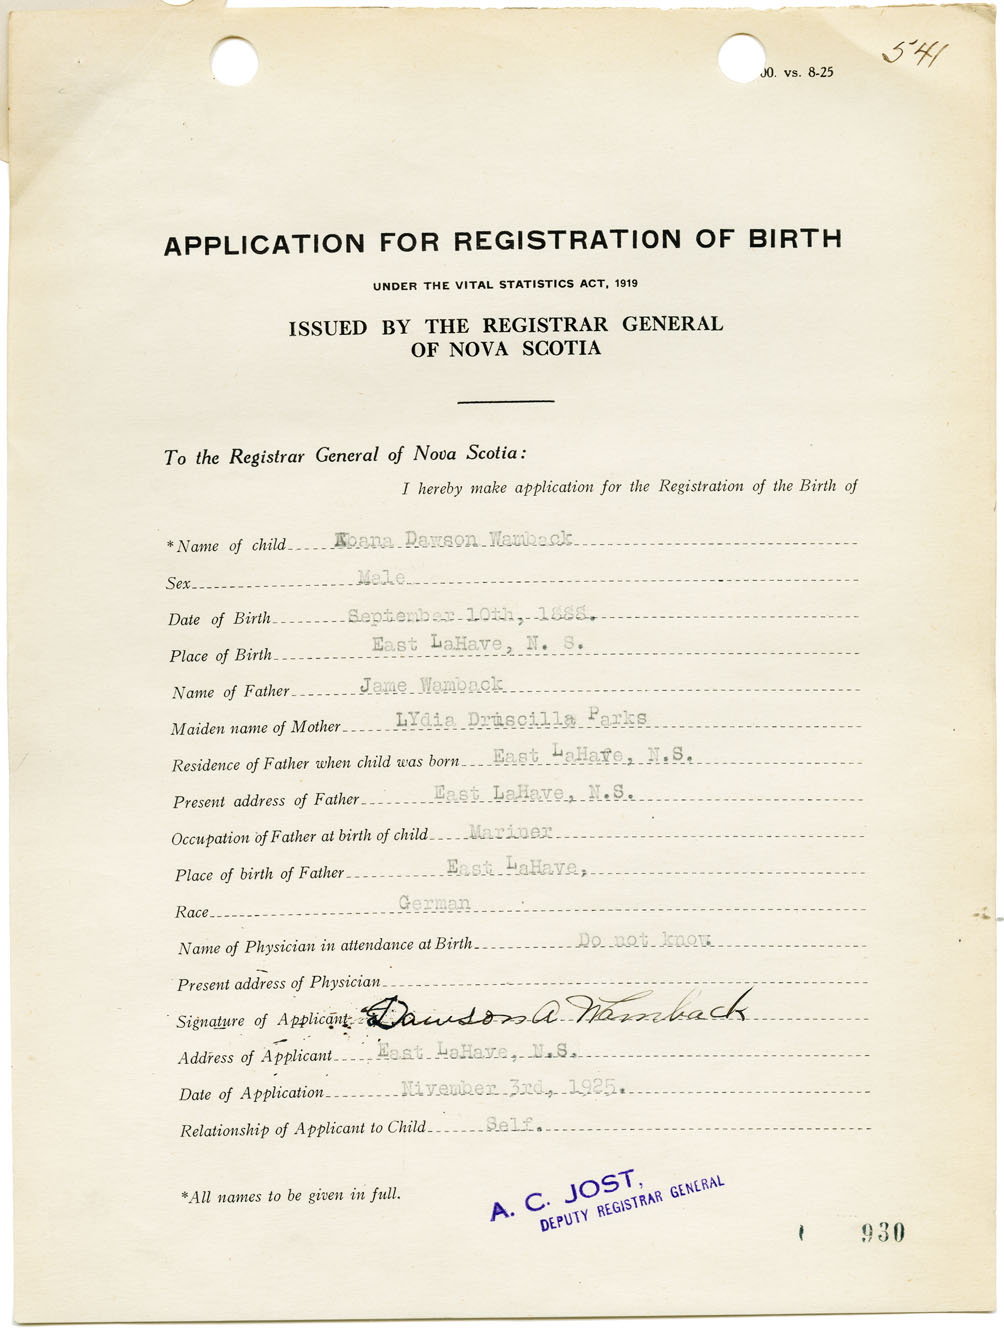 541
00. vs. 8-25
APPLICATION FOR REGISTRATION OF BIRTH
UNDER THE VITAL STATISTICS ACT, 1919
ISSUED BY THE REGISTRAR GENERAL
OF NOVA SCOTIA
To the Registrar General of Nova Scotia:
I hereby make application for the Registration of the Birth of
*Name of child Dawson Wamback
Sex Male
Date of Birth September 10th, 1888.
Place of Birth East LaHave, N. S.
Name of Father Jame Wamback
Maiden name of Mother LYdia Druscilla Parks
Residence of Father when child was born East LaHave, N.S.
Present address of Father East LaHave, N.S.
Occupation of Father at birth of child Mariner
Place of birth of Father East LaHave,
Race German
Name of Physician in attendance at Birth Do not know
Present address of Physician
Signature of Applicant Dawson A Wamback
Address of Applicant East LaHave, N.S.
Date of Application Nivember 3rd, 1925.
Relationship of Applicant to Child Self.
*All names to be given in full.
A. C. JOST,
DEPUTY REGISTRAR GENERAL
930